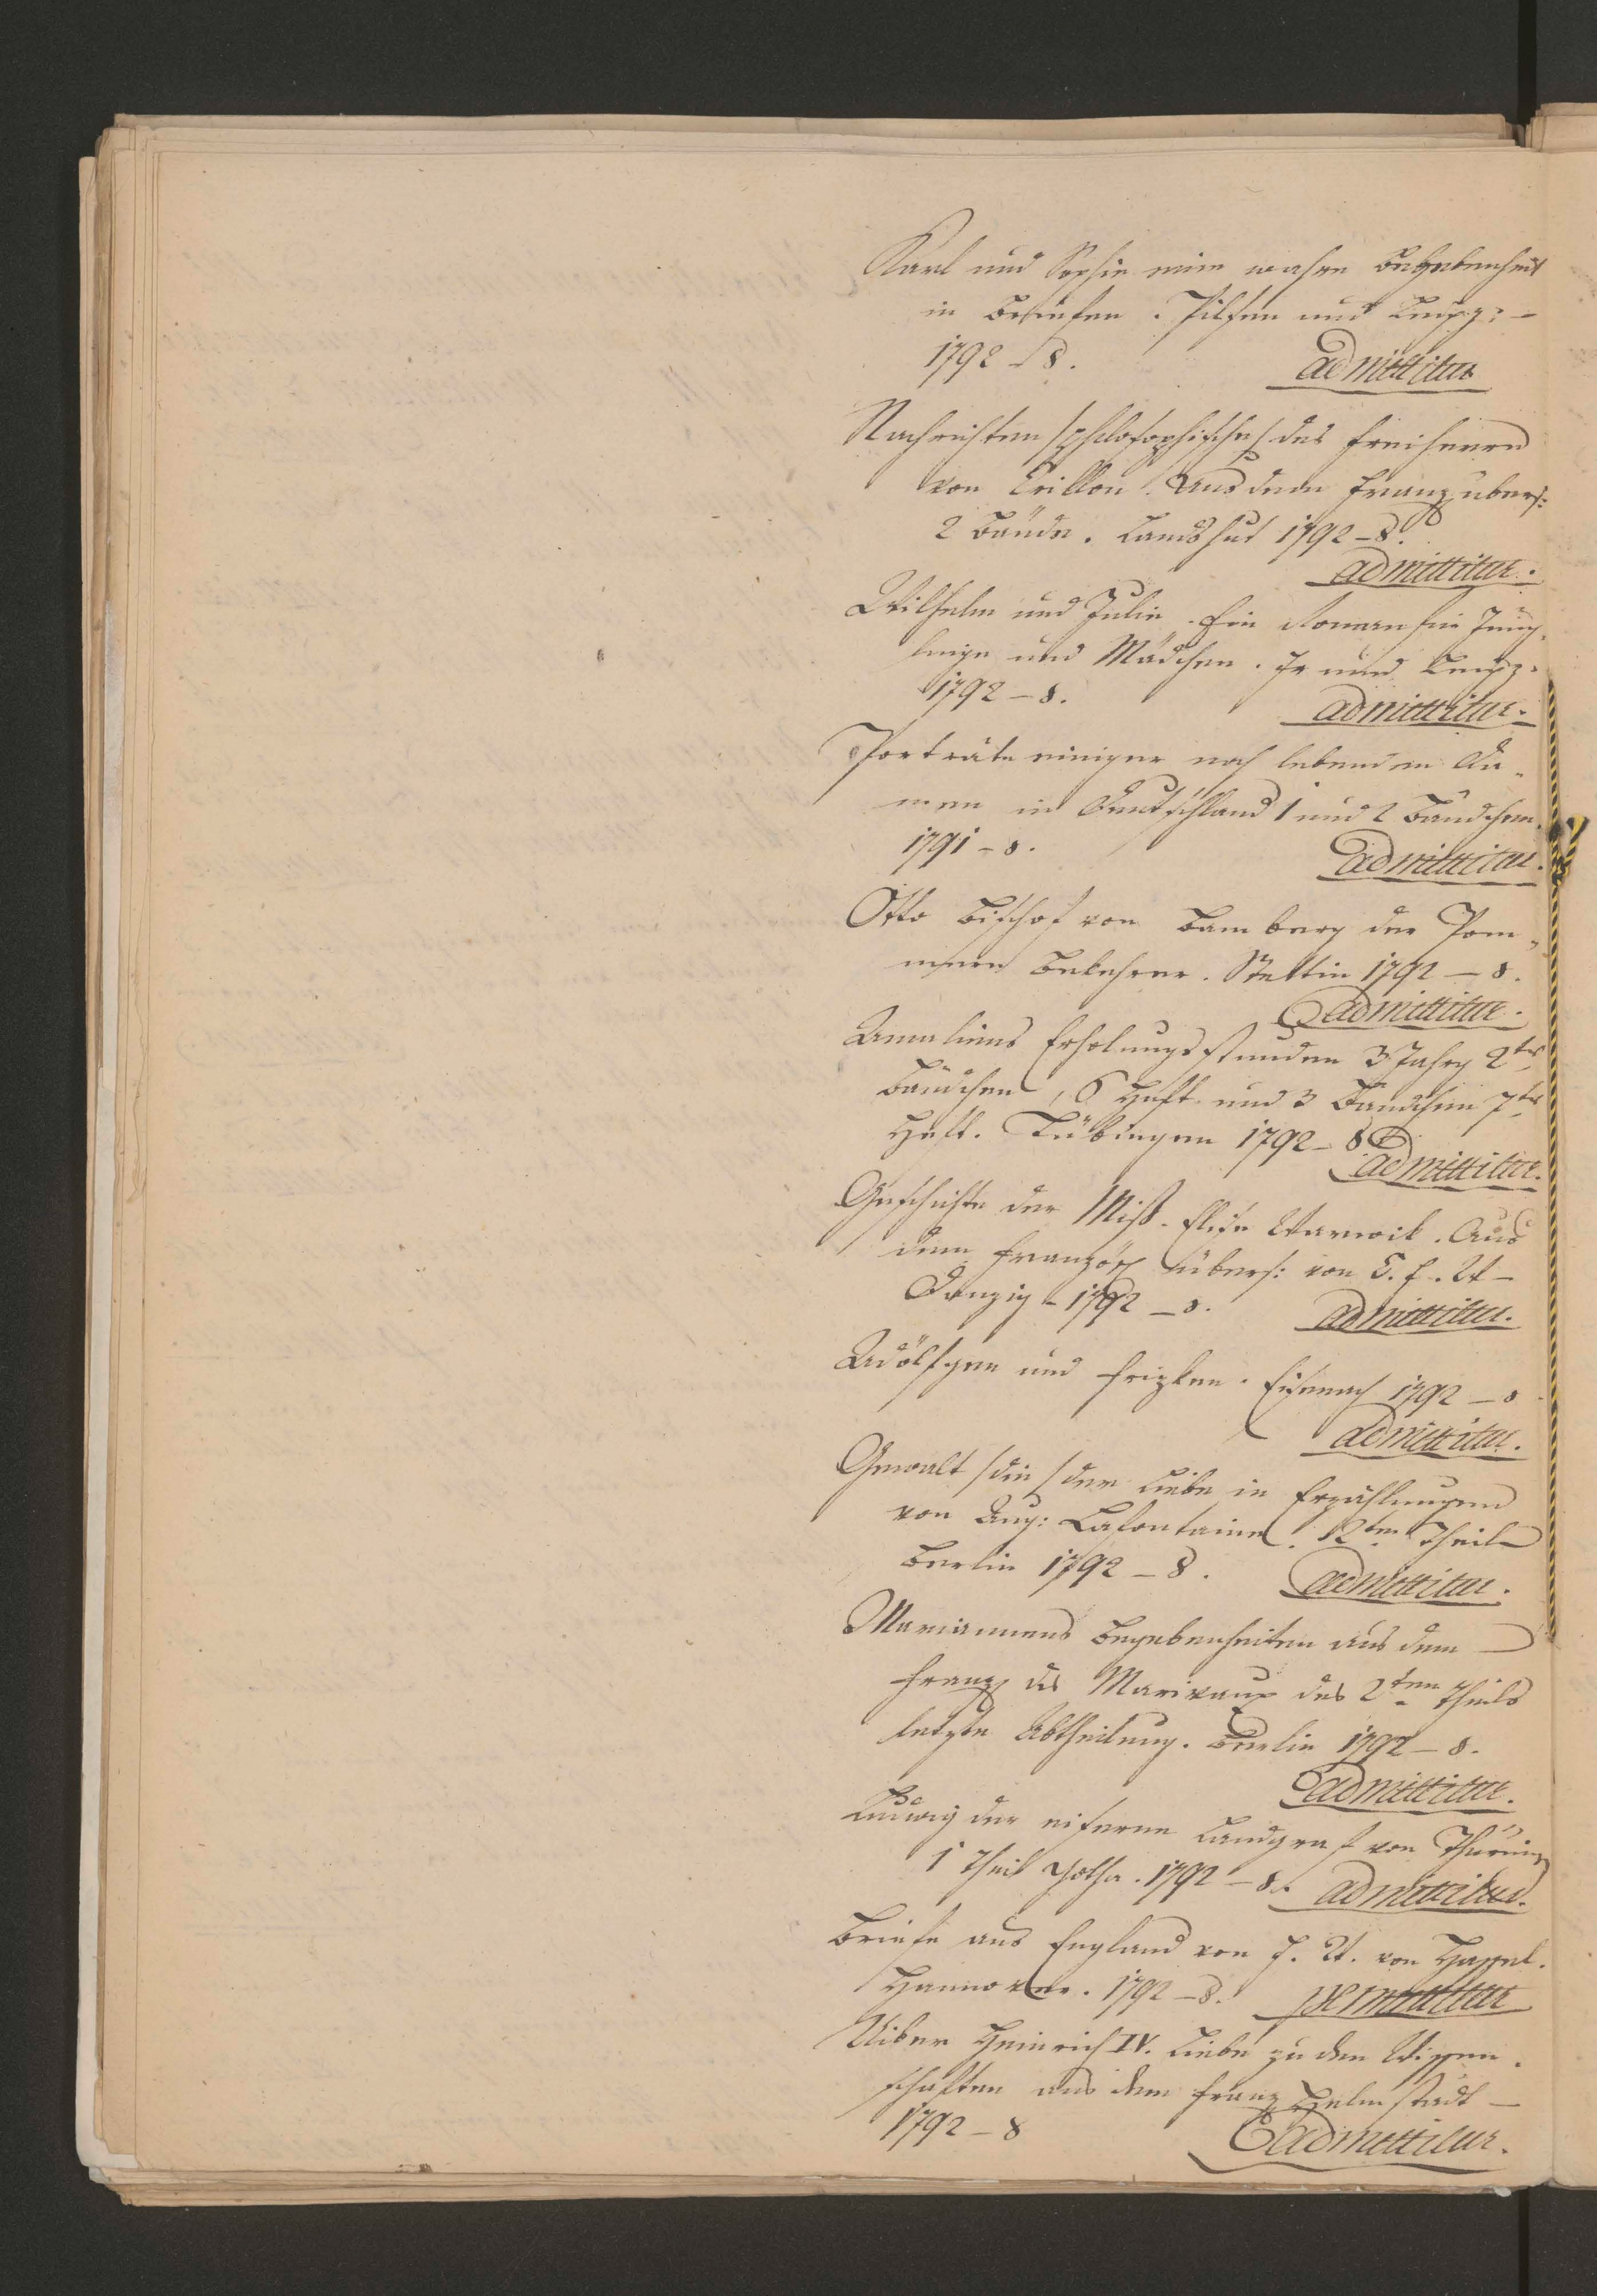 Karl und Sophie eine wahre Begebenheit
in Briefen. Pilsen und Leipz: –
1792 – 8. admittitur
Nachrichten /philosophische/ des Freiherrn
von Crillon. Aus dem Franz. übers:
2 Bände. Landshut 1792 – 8.
admittitur.
Wilhelm und Julie. Ein Roman für Jüng-
linge und Mädchen. und Leipz.
1792 – 8. admittitur.
Porträte einiger noch lebenden Da-
men in Deutschland 1 und 2 Bändchen.
1791 – 8. admittitur.
Otto Bischof von Bamberg der Pom-
mern Bekehrer. Stettin 1792 – 8.
admittitur.
Amaliens Erholungsstunden 3 Jahrg 2tes
Bändchen, 6 Heft und 3 Bändchen 7tes
Heft. Tübingen 1792 – 8
admittitur.
Geschichte der Miß. Elise Warwik. Aus
dem Französ. übers: von C. F. W –
Danzig – 1792 – 8. admittitur.
Adölfgen und Frizken. Eisenach 1792 – 8
admittitur.
Gewalt /die/ der Liebe in Erzählungen
von Aug: Lafontaine. 2ter Theil
Berlin 1792 – 8. admittitur.
Mariannens Begebenheiten aus dem
Franz. des Marivaux des 2ten Theils
letzte Abtheilung. Berlin 1792 – 8.
admittitur.
Ludwig der eiserne Landgraf von Thüring
1 Theil Gotha. 1792 – 8. admittitur.
Briefe aus England von F. W. von Hassel.
Hannover. 1792 – 8. permittitur
Uiber Heinrich IV. Liebe zu den Wissen-
schaften aus dem Franz. Helmstädt –
1792 – 8 admittitur.